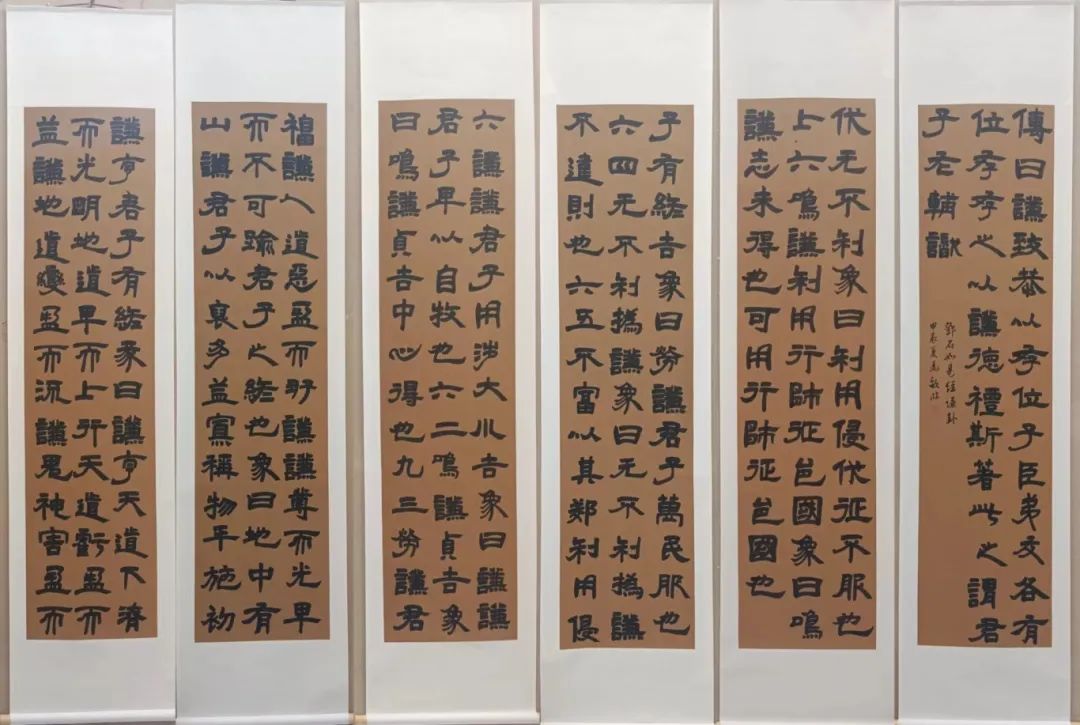 謙亨君子有終彖曰謙亨天道下濟
而光明地道卑而上行天道虧盈而
益謙地道變盈而流謙鬼神害盈而
福謙人道惡盈而好謙尊而光卑
而不可踰君子之終也象曰地中有
山謙君子以裒多益寡稱物平施初
六謙謙君子用涉大川吉象曰謙謙
君子卑以自牧也六二鳴謙貞吉象
曰鳴謙貞吉中心得也九三勞謙君
子有終吉象曰勞謙君子萬民服也
六四无不利撝謙象曰无不利撝謙
不違則也六五不富以其鄰利用侵
伐无不利象曰利用侵伐征不服也
上六鳴謙利用行師征邑國象曰鳴
謙志未得也可用行師征邑國也
傳曰謙致恭以存位子臣弟友各有
位存存之以謙德禮斯著此之謂君
子左輔識
鄧石如易經謙卦
甲辰夏